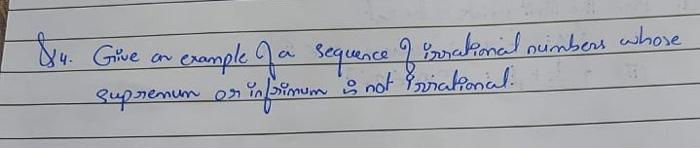 Q4. Give an example of a sequence of irrational numbers whose
supremum or infimum is not irrational.